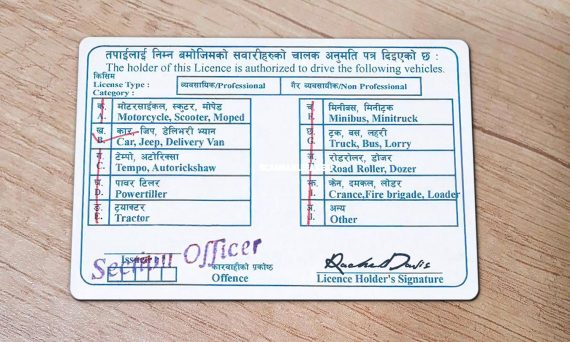 तपाईलाई निम्न बमोजिमको सवारीहरुको चालक अनुमति पत्र दिइएको छ :
The holder of this Licence is authorized to drive the following vehicles.
किसिम
License Type : व्यवसायिक/Professional गैर व्यवसायीक/Non Professional
Category :
क. मोटरसाईकल, स्कुटर, मोपेड
A. Motorcycle, Scooter, Moped
ख. कार, जिप, डेलिभरी भ्यान
B. Car, Jeep, Delivery Van
ग. टेम्पो, अटोरिक्सा
C. Tempo, Autorickshaw
घ. पावर टिलर
D. Powertiller
ङ. ट्र्याक्टर
E. Tractor
च. मिनीबस, मिनीट्रक
F. Minibus, Minitruck
छ. ट्रक, बस, लहरी
G. Truck, Bus, Lorry
रोडरोलर, डोजर
Road Roller, Dozer
क्रेन, दमकल, लोडर
I. Crance,Fire brigade, Loader
अन्य
J. Other
Section Officer
कारवाहीको प्रकोष्ठ
Offence
Rachel Davis
Licence Holder's Signature